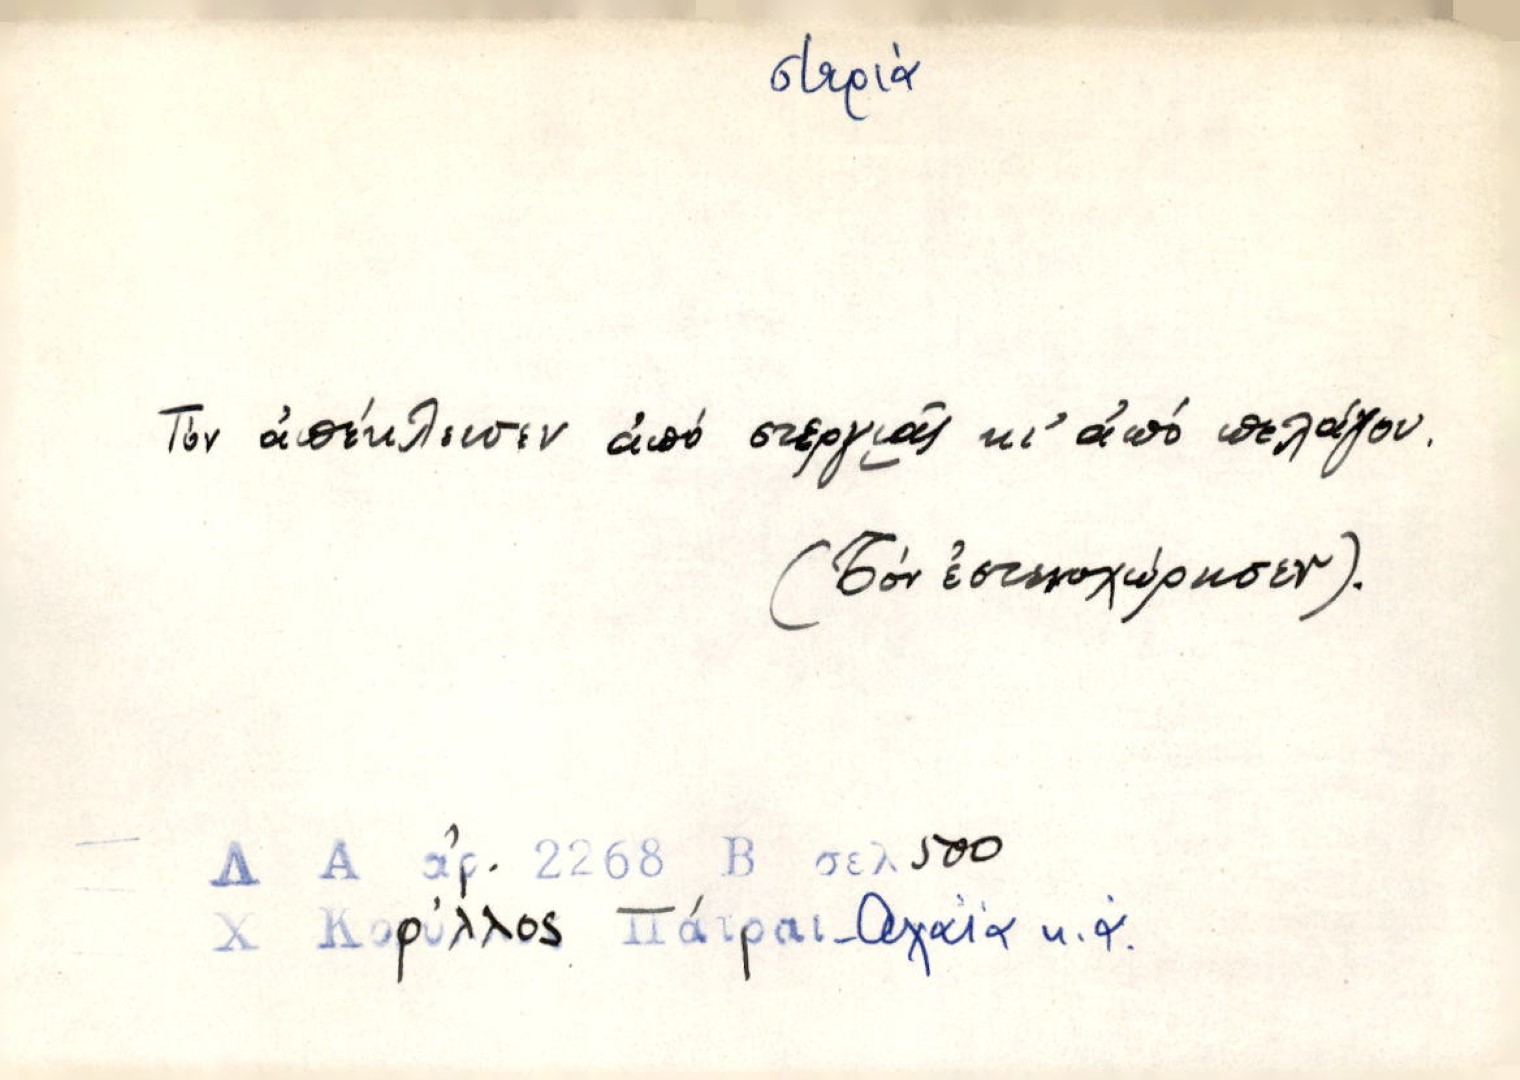 στεριὰ
Τὸν ἀπέκλεισεν ἀπό στεργιᾶς κι' ἀπό πελάγου.
(Τόν ἐστενοχώρησεν).
Λ Α ἀρ. 2268 Β σελ 500
Χ Κορύλλος Πάτραι-Ἀχαΐα κ.ἀ.